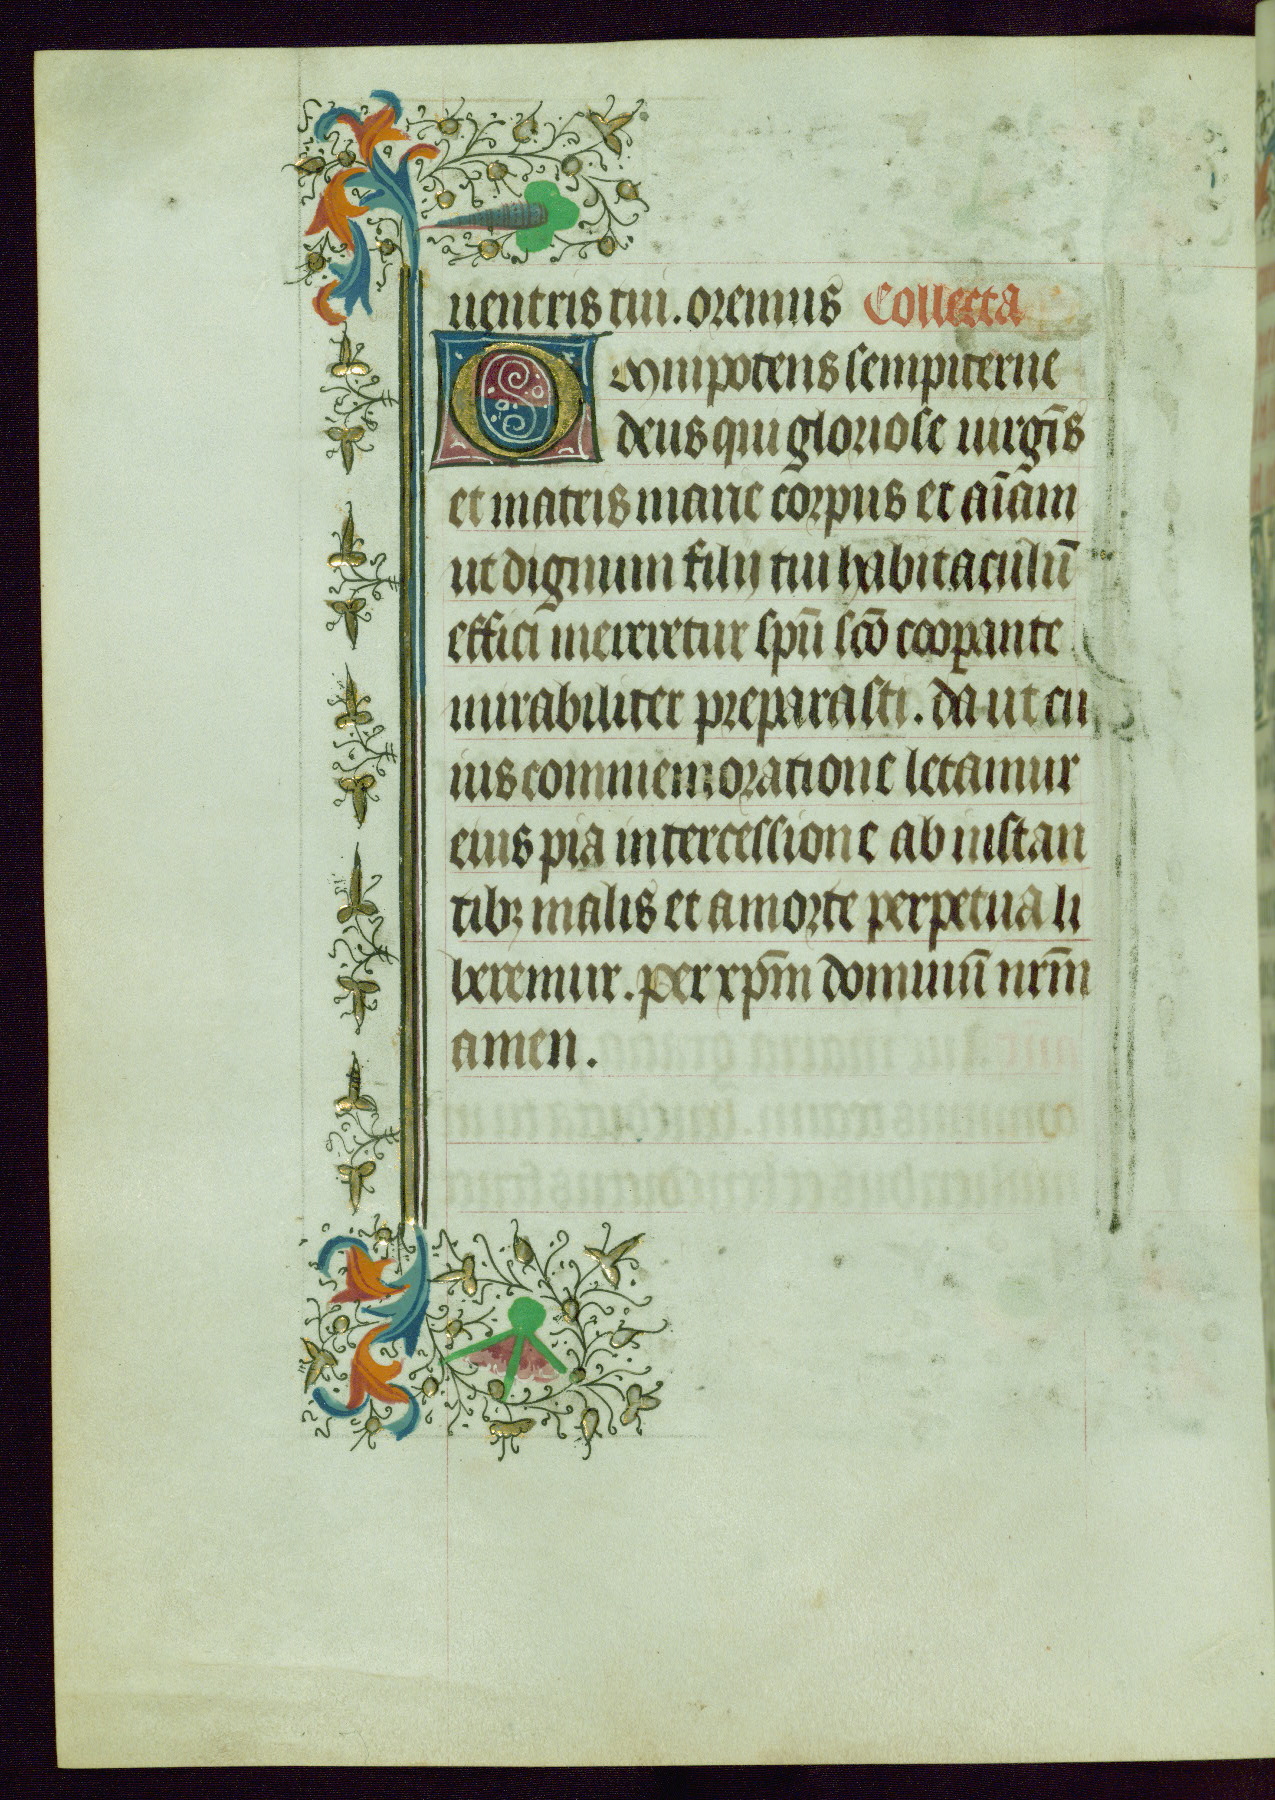 uentris tui. oremus Collecta
Omnipotens sempiterne
deus qui gloriose uirgīs
et matris marie corpus et aīam
ut dignum filij tui habitaculū
effici mereretur spū scō coopante
mirabiliter preparasti. da ut cu
ius commemoratione letamur
eius pia intercessione ab instan
tibꝫ malis et a morte perpetua li
beremur. per xp̄m dominū nr̄m
amen.